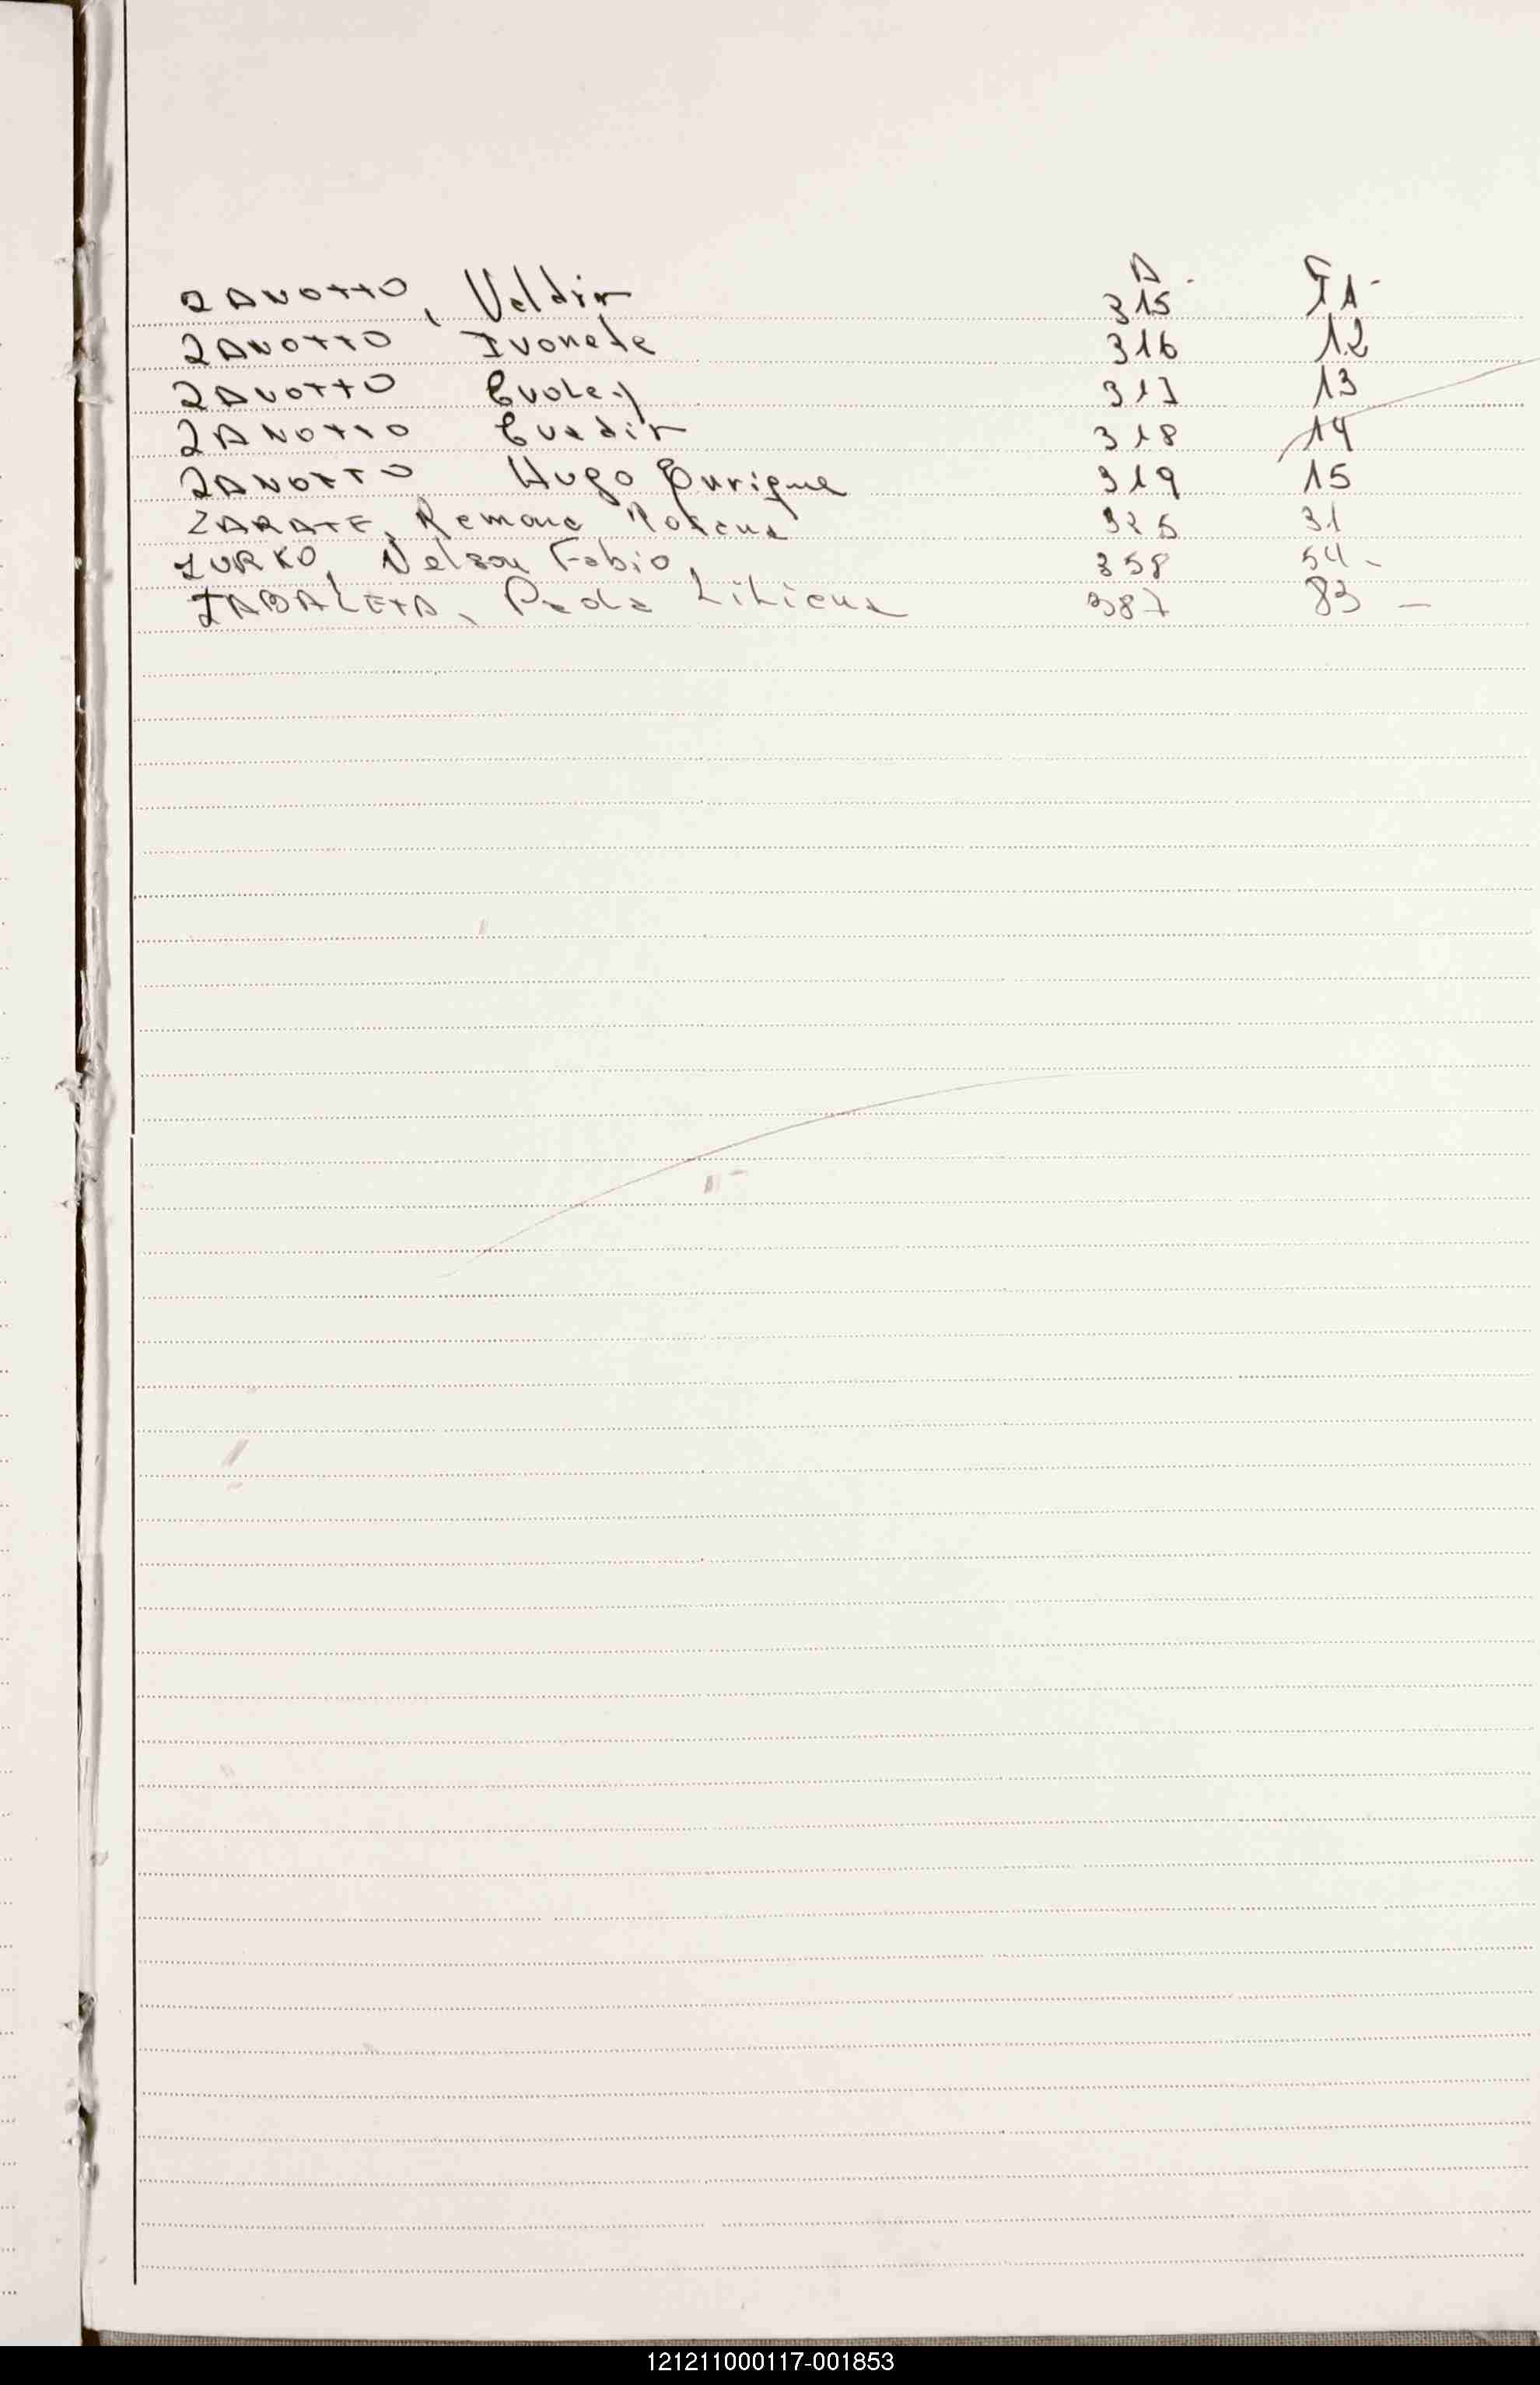 A - F -
ZANOTTO, Valdir 315 11
ZANOTTO Ivonete 316 12
ZANOTTO 317 13
ZANOTTO Evadir 318 14
ZANOTTO Hugo Enrique 319 15
ZARATE, Ramona 325 31
ZURKO, Nelson Fabio, 358 54 -
ZABALETA, Liliana 387 83 -
121211000117-001853